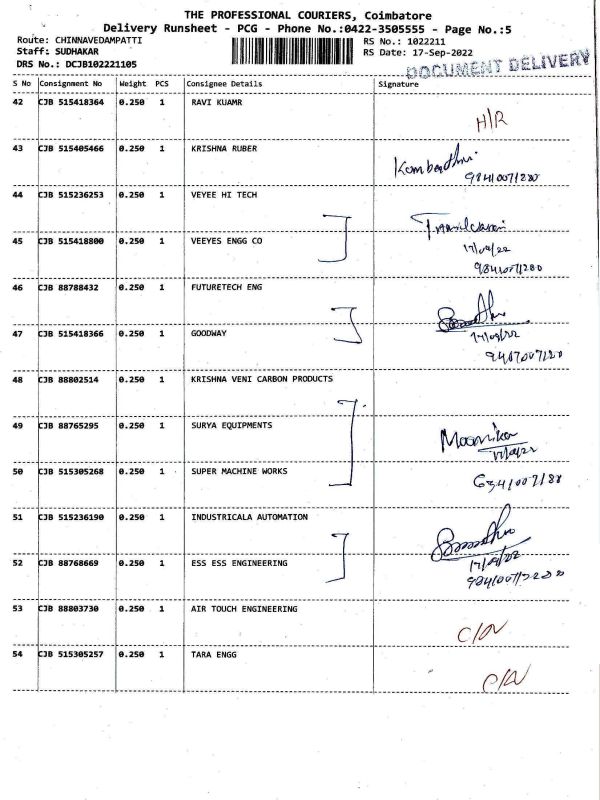 THE PROFESSIONAL COURIERS, Coimbatore
Delivery Runsheet - PCG - Phone No.:0422-3505555 - Page No.:5
Route: CHINNAVEDAMPATTI RS No.: 1022211
Staff: SUDHAKAR RS Date: 17-Sep-2022
DRS No.: DCJB102221105
DOCUMENT DELIVERY
S No Consignment No Weight PCS Consignee Details Signature
42 CJB 515418364 0.250 1 RAVI KUAMR
H/R
43 CJB 515405466 0.250 1 KRISHNA RUBER
44 CJB 515236253 0.250 1 VEYEE HI TECH
45 CJB 515418800 0.250 1 VEEYES ENGG CO
17/09/22
46 CJB 88788432 0.250 1 FUTURETECH ENG
47 CJB 515418366 0.250 1 GOODWAY
17/09/22
48 CJB 88802514 0.250 1 KRISHNA VENI CARBON PRODUCTS
49 CJB 88765295 0.250 1 SURYA EQUIPMENTS
17/09/22
50 CJB 515305268 0.250 1 SUPER MACHINE WORKS
51 CJB 515236190 0.250 1 INDUSTRICALA AUTOMATION
52 CJB 88768669 0.250 1 ESS ESS ENGINEERING
17/09/22
53 CJB 88803730 0.250 1 AIR TOUCH ENGINEERING
C/N
54 CJB 515305257 0.250 1 TARA ENGG
C/N